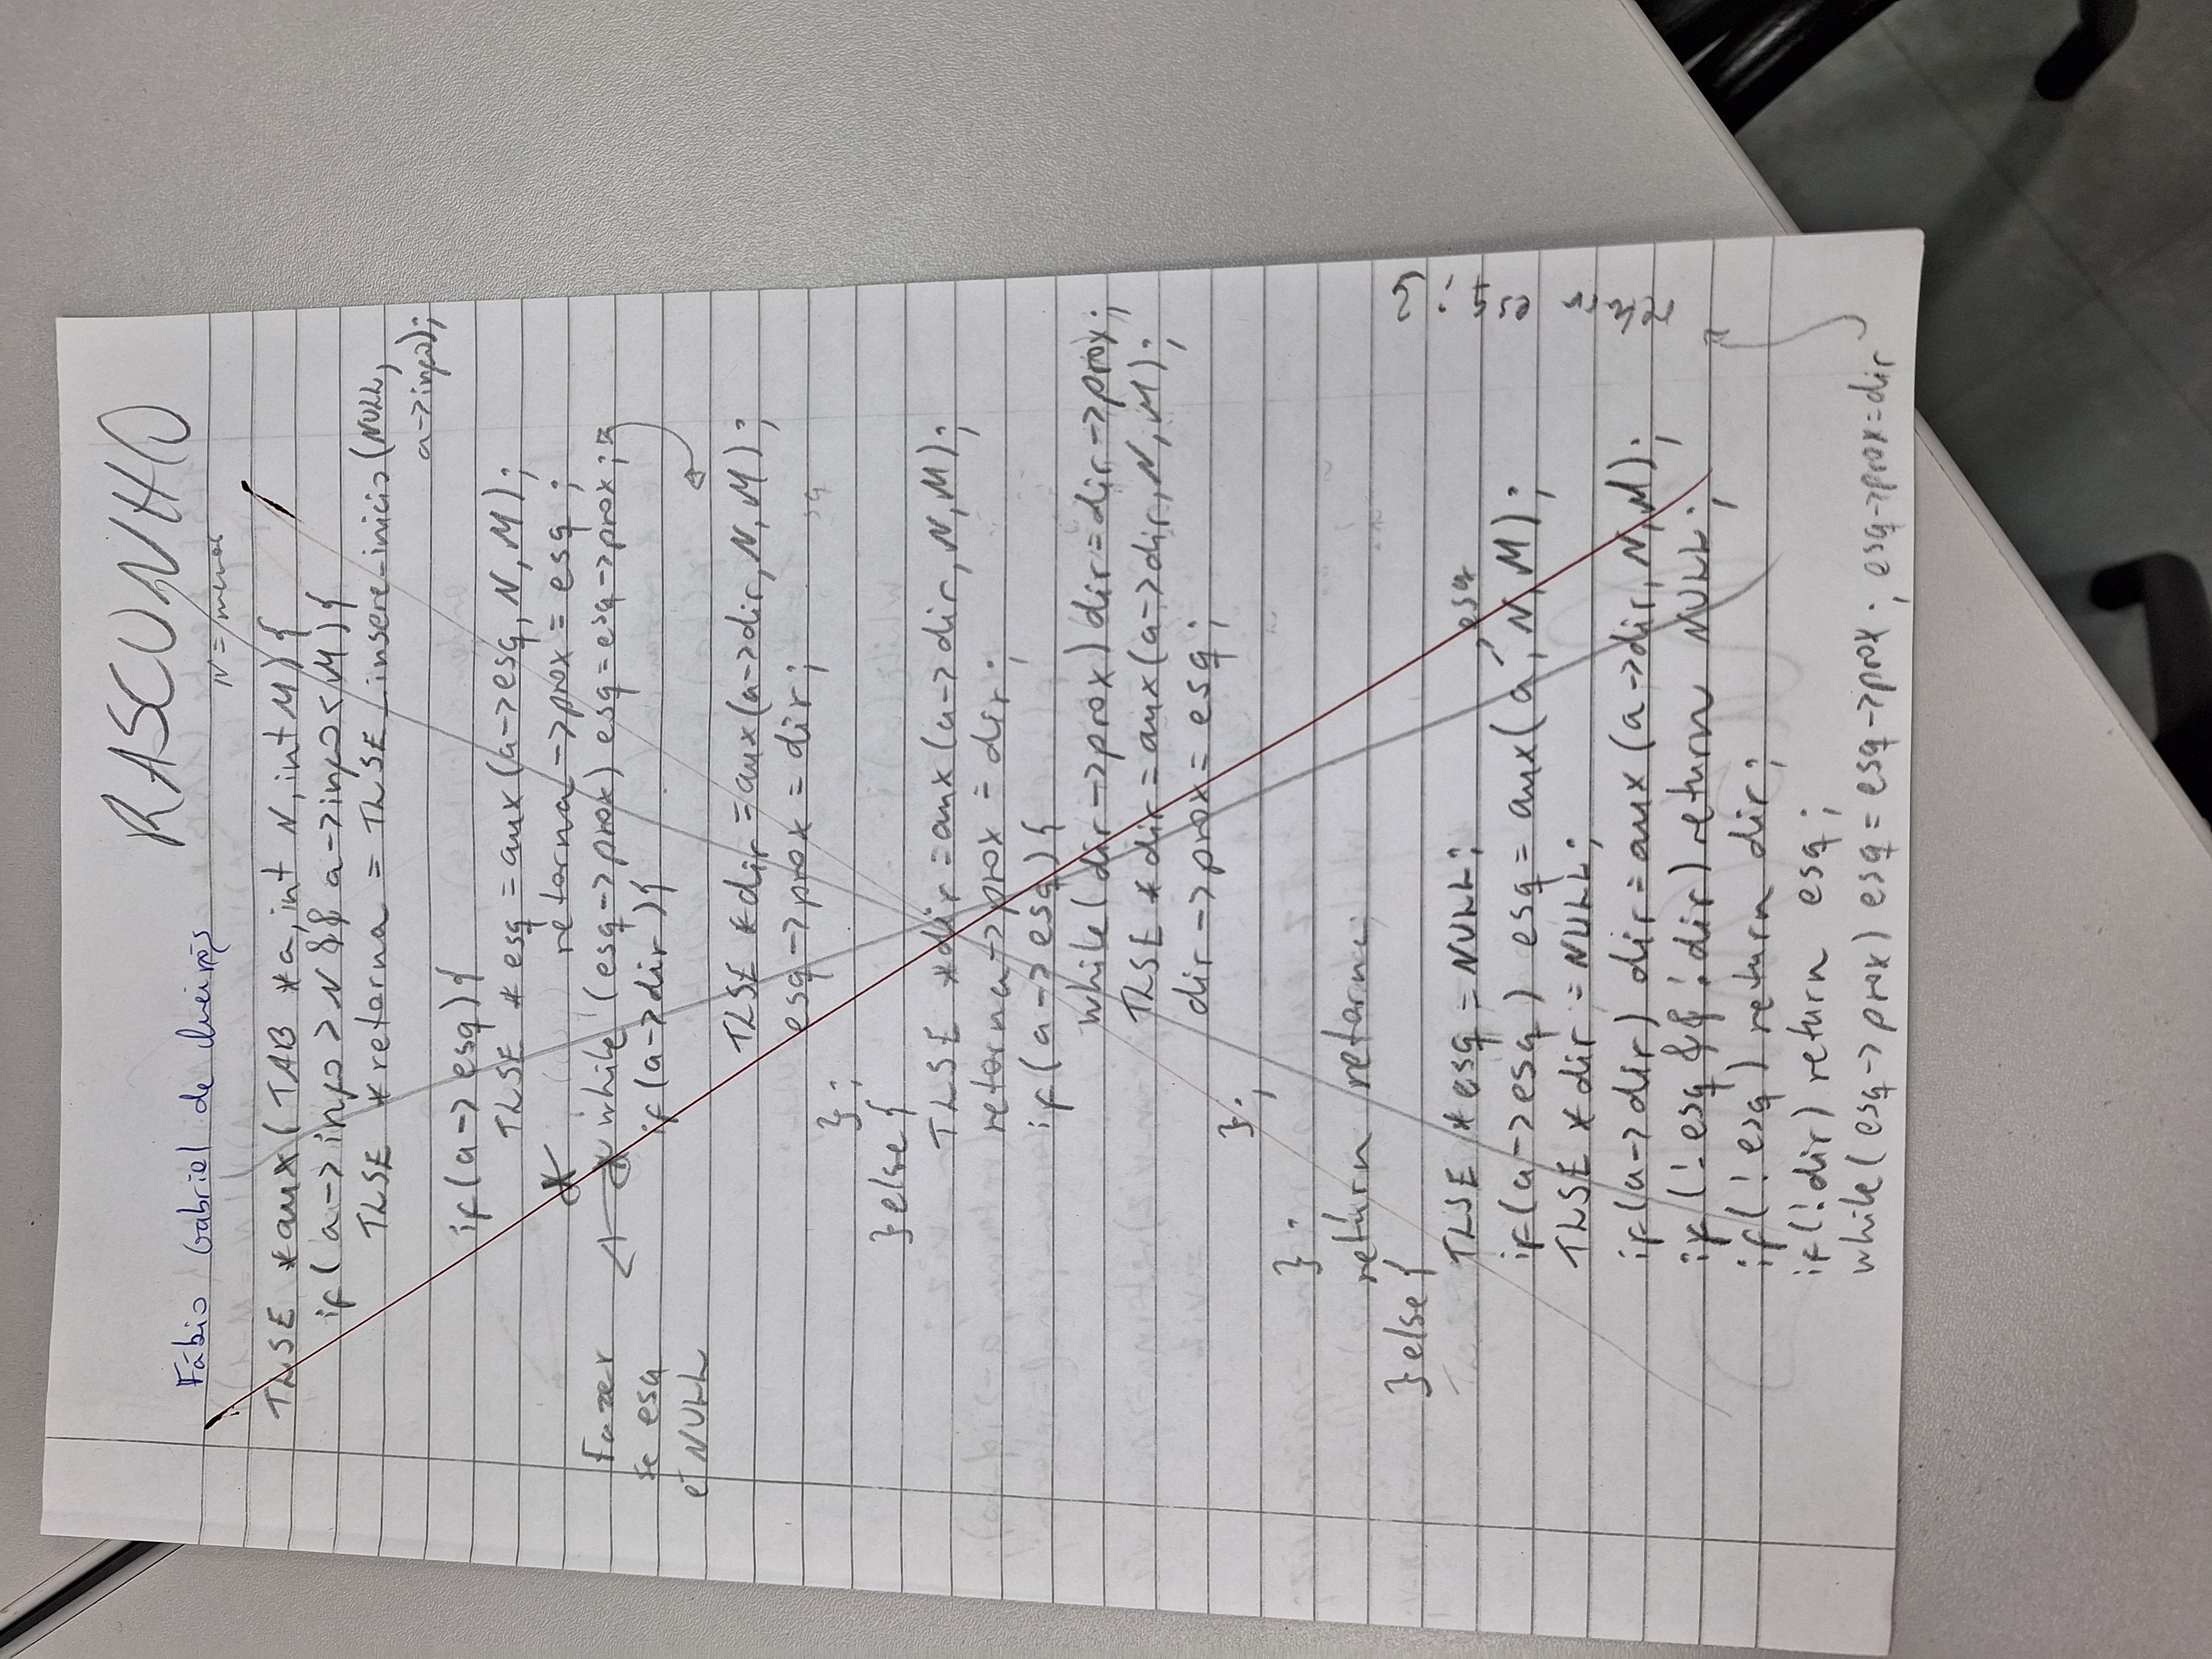 RASCUNHO
Fábio Gabriel de
N = menor
TLSE *aux(TAB *a, int N, int M){
if(a->info > N && a->info < M){
TLSE *retorna = TLSE_insere_inicio(NULL,
a->info);
if(a->esq){
TLSE *esq = aux(a->esq, N, M);
retorna->prox = esq;
while (esq->prox) esq = esq->prox;
Fazer
se esq
é NULL
if(a->dir){
TLSE *dir = aux(a->dir, N, M);
esq->prox = dir;
};
}else{
TLSE *dir = aux(a->dir, N, M);
retorna->prox = dir;
if(a->esq){
while(dir->prox) dir = dir->prox;
TLSE *dir = aux(a->dir, N, M);
dir->prox = esq;
};
};
return retorna;
}else{
TLSE *esq = NULL;
if(a->esq) esq = aux(a->esq, N, M);
TLSE *dir = NULL;
if(a->dir) dir = aux(a->dir, N, M);
if(!esq && !dir) return NULL;
if(!esq) return dir;
if(!dir) return esq;
while(esq->prox) esq = esq->prox; esq->prox=dir
return esq;}